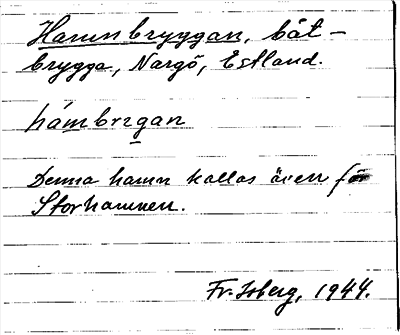 Hamnbryggan, båt-
brygga, Nargö, Estland.
hámbrigan
Denna hamn kallas även för
Storhamnen.
Fr. Isberg, 1944.